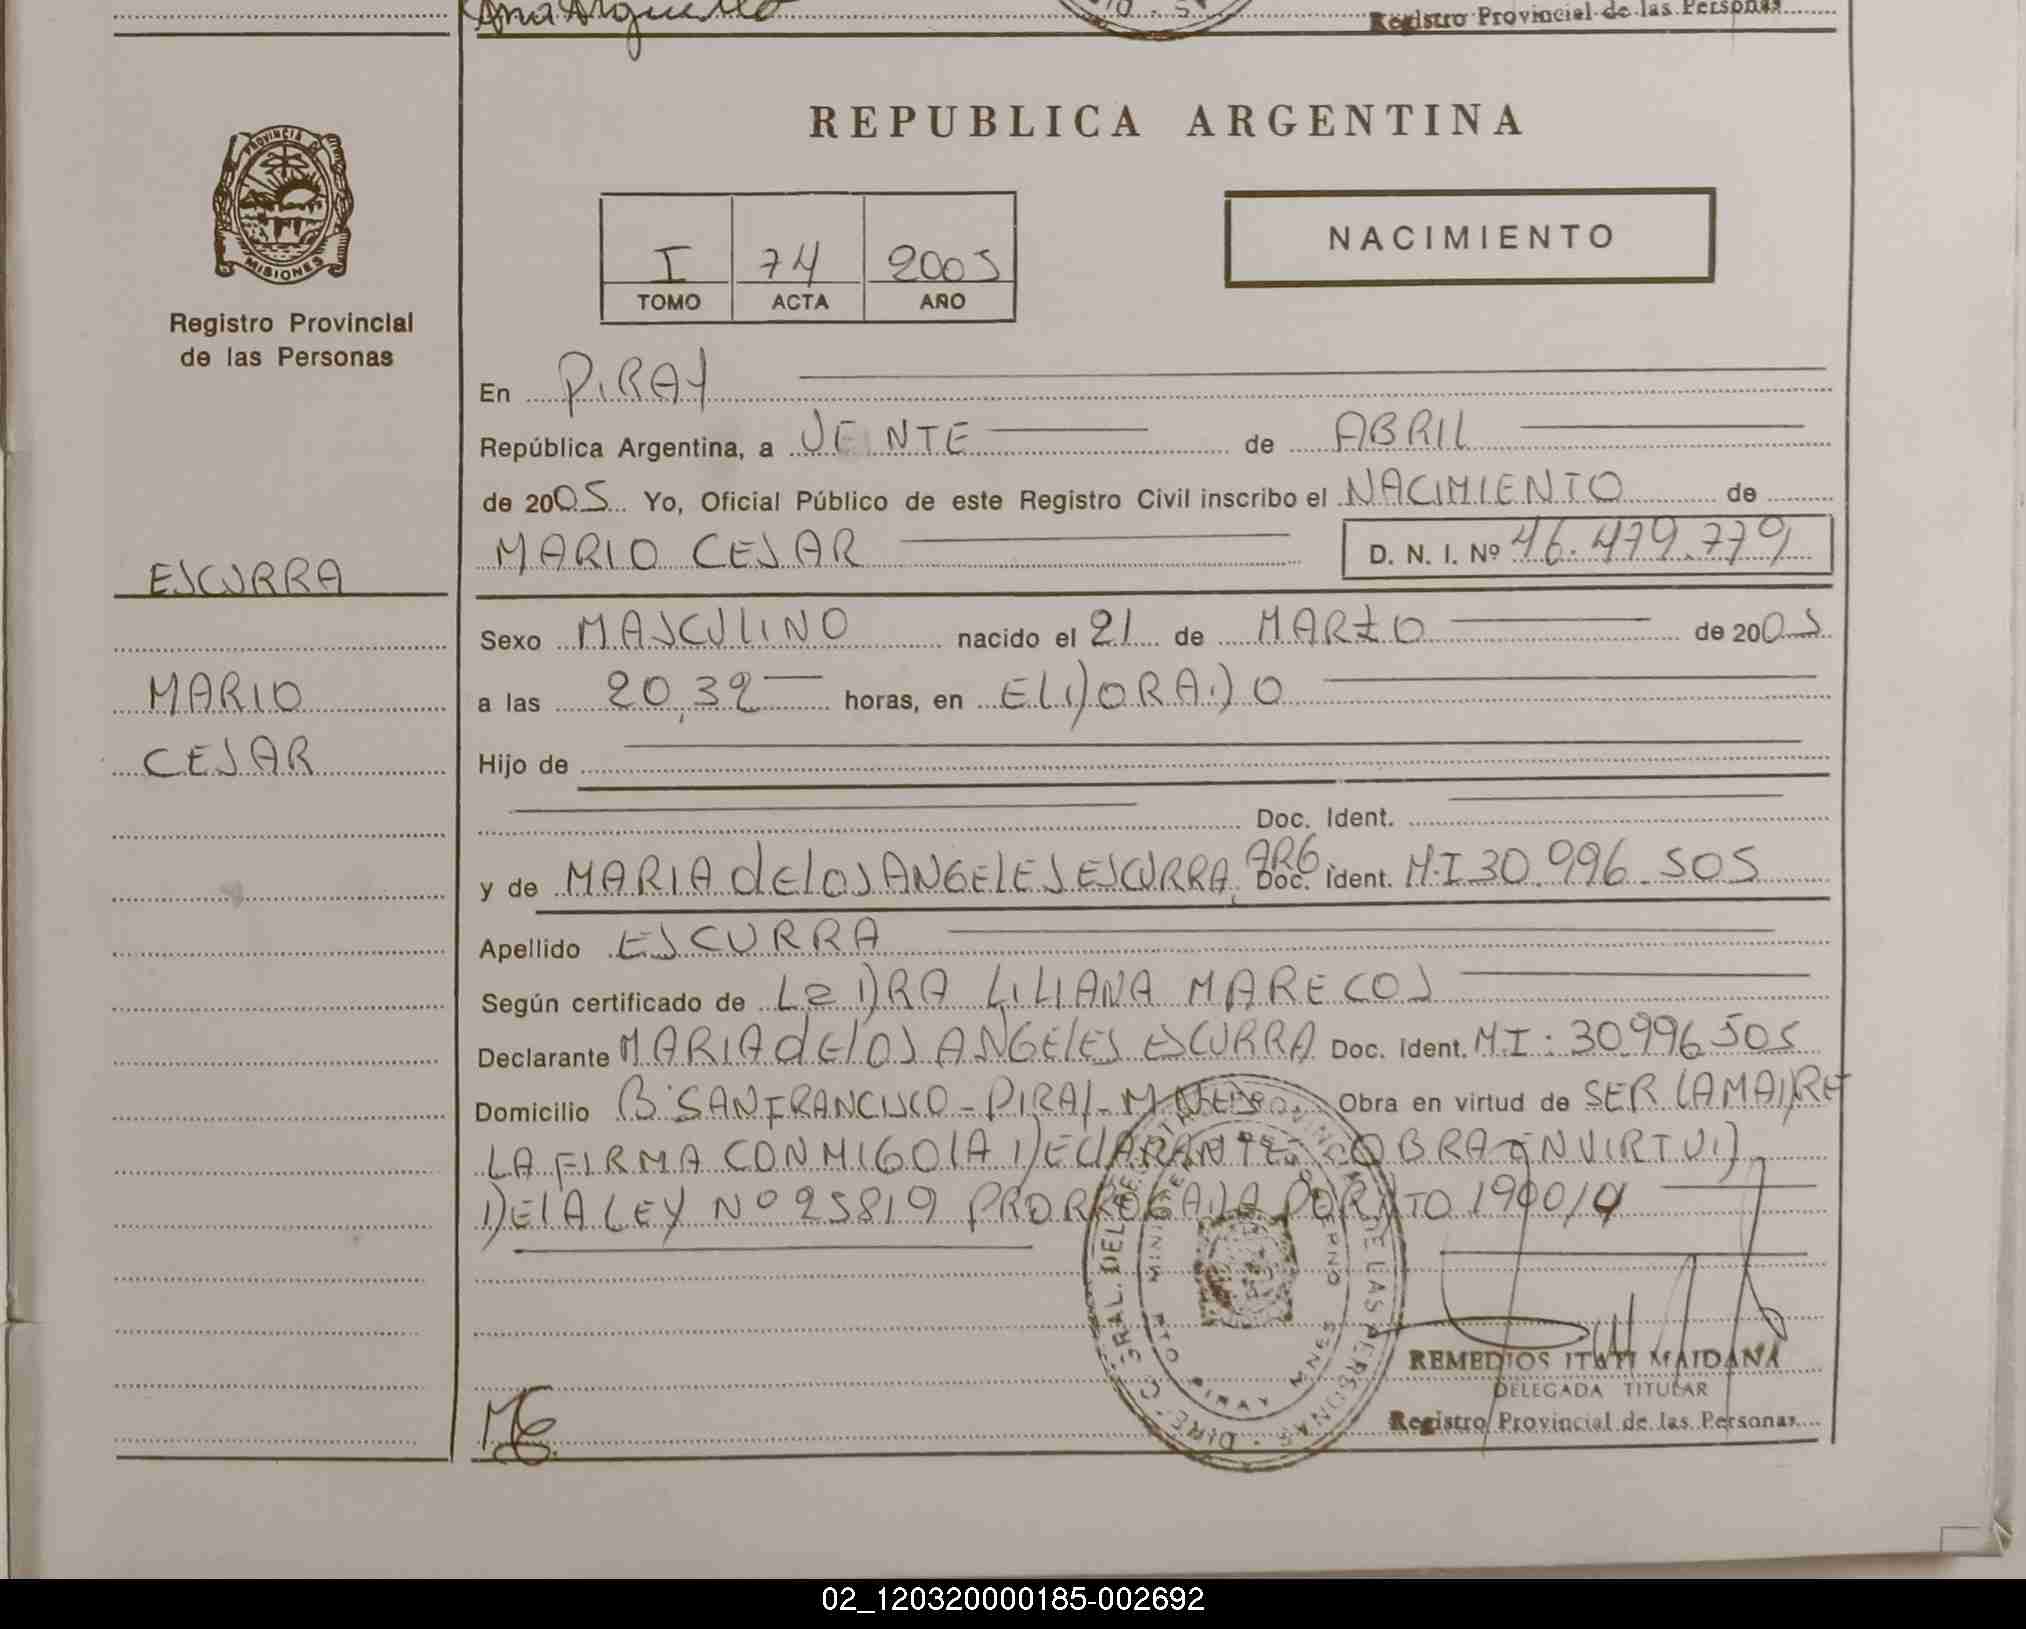 Ana Arguello
Registro Provincial de las Personas
PROVINCIA DE
MISIONES
Registro Provincial
de las Personas
REPUBLICA ARGENTINA
I 74 2005
TOMO ACTA AÑO
NACIMIENTO
En PIRAY
República Argentina, a VEINTE de ABRIL
de 2005 Yo, Oficial Público de este Registro Civil inscribo el NACIMIENTO de
MARIO CESAR D. N. I. Nº 46.479.779
ESCURRA
MARIO
CESAR
Sexo MASCULINO nacido el 21 de MARZO de 2005
a las 20,32 horas, en ELDORADO
Hijo de
Doc. Ident.
y de MARIA de LOS ANGELES ESCURRA, ARG. Doc. Ident. M.I 30.996.505
Apellido ESCURRA
Según certificado de La DRA LILIANA MARECOS
Declarante MARIA de LOS ANGELES ESCURRA Doc. Ident. M.I: 30.996505
Domicilio Bº SAN FRANCISCO - PIRAY - MNES Obra en virtud de SER LA MADRE
LA FIRMA CONMIGO LA DECLARANTE. OBRA EN VIRTUD
DE LA LEY Nº 25819 PRORROGADA POR DTO 1900/4
DIREC. GRAL. DEL REGISTRO PROVINCIAL DE LAS PERSONAS
PIRAY MNES
REMEDIOS ITATI MAIDANA
DELEGADA TITULAR
Registro Provincial de las Personas
ME
02_120320000185-002692